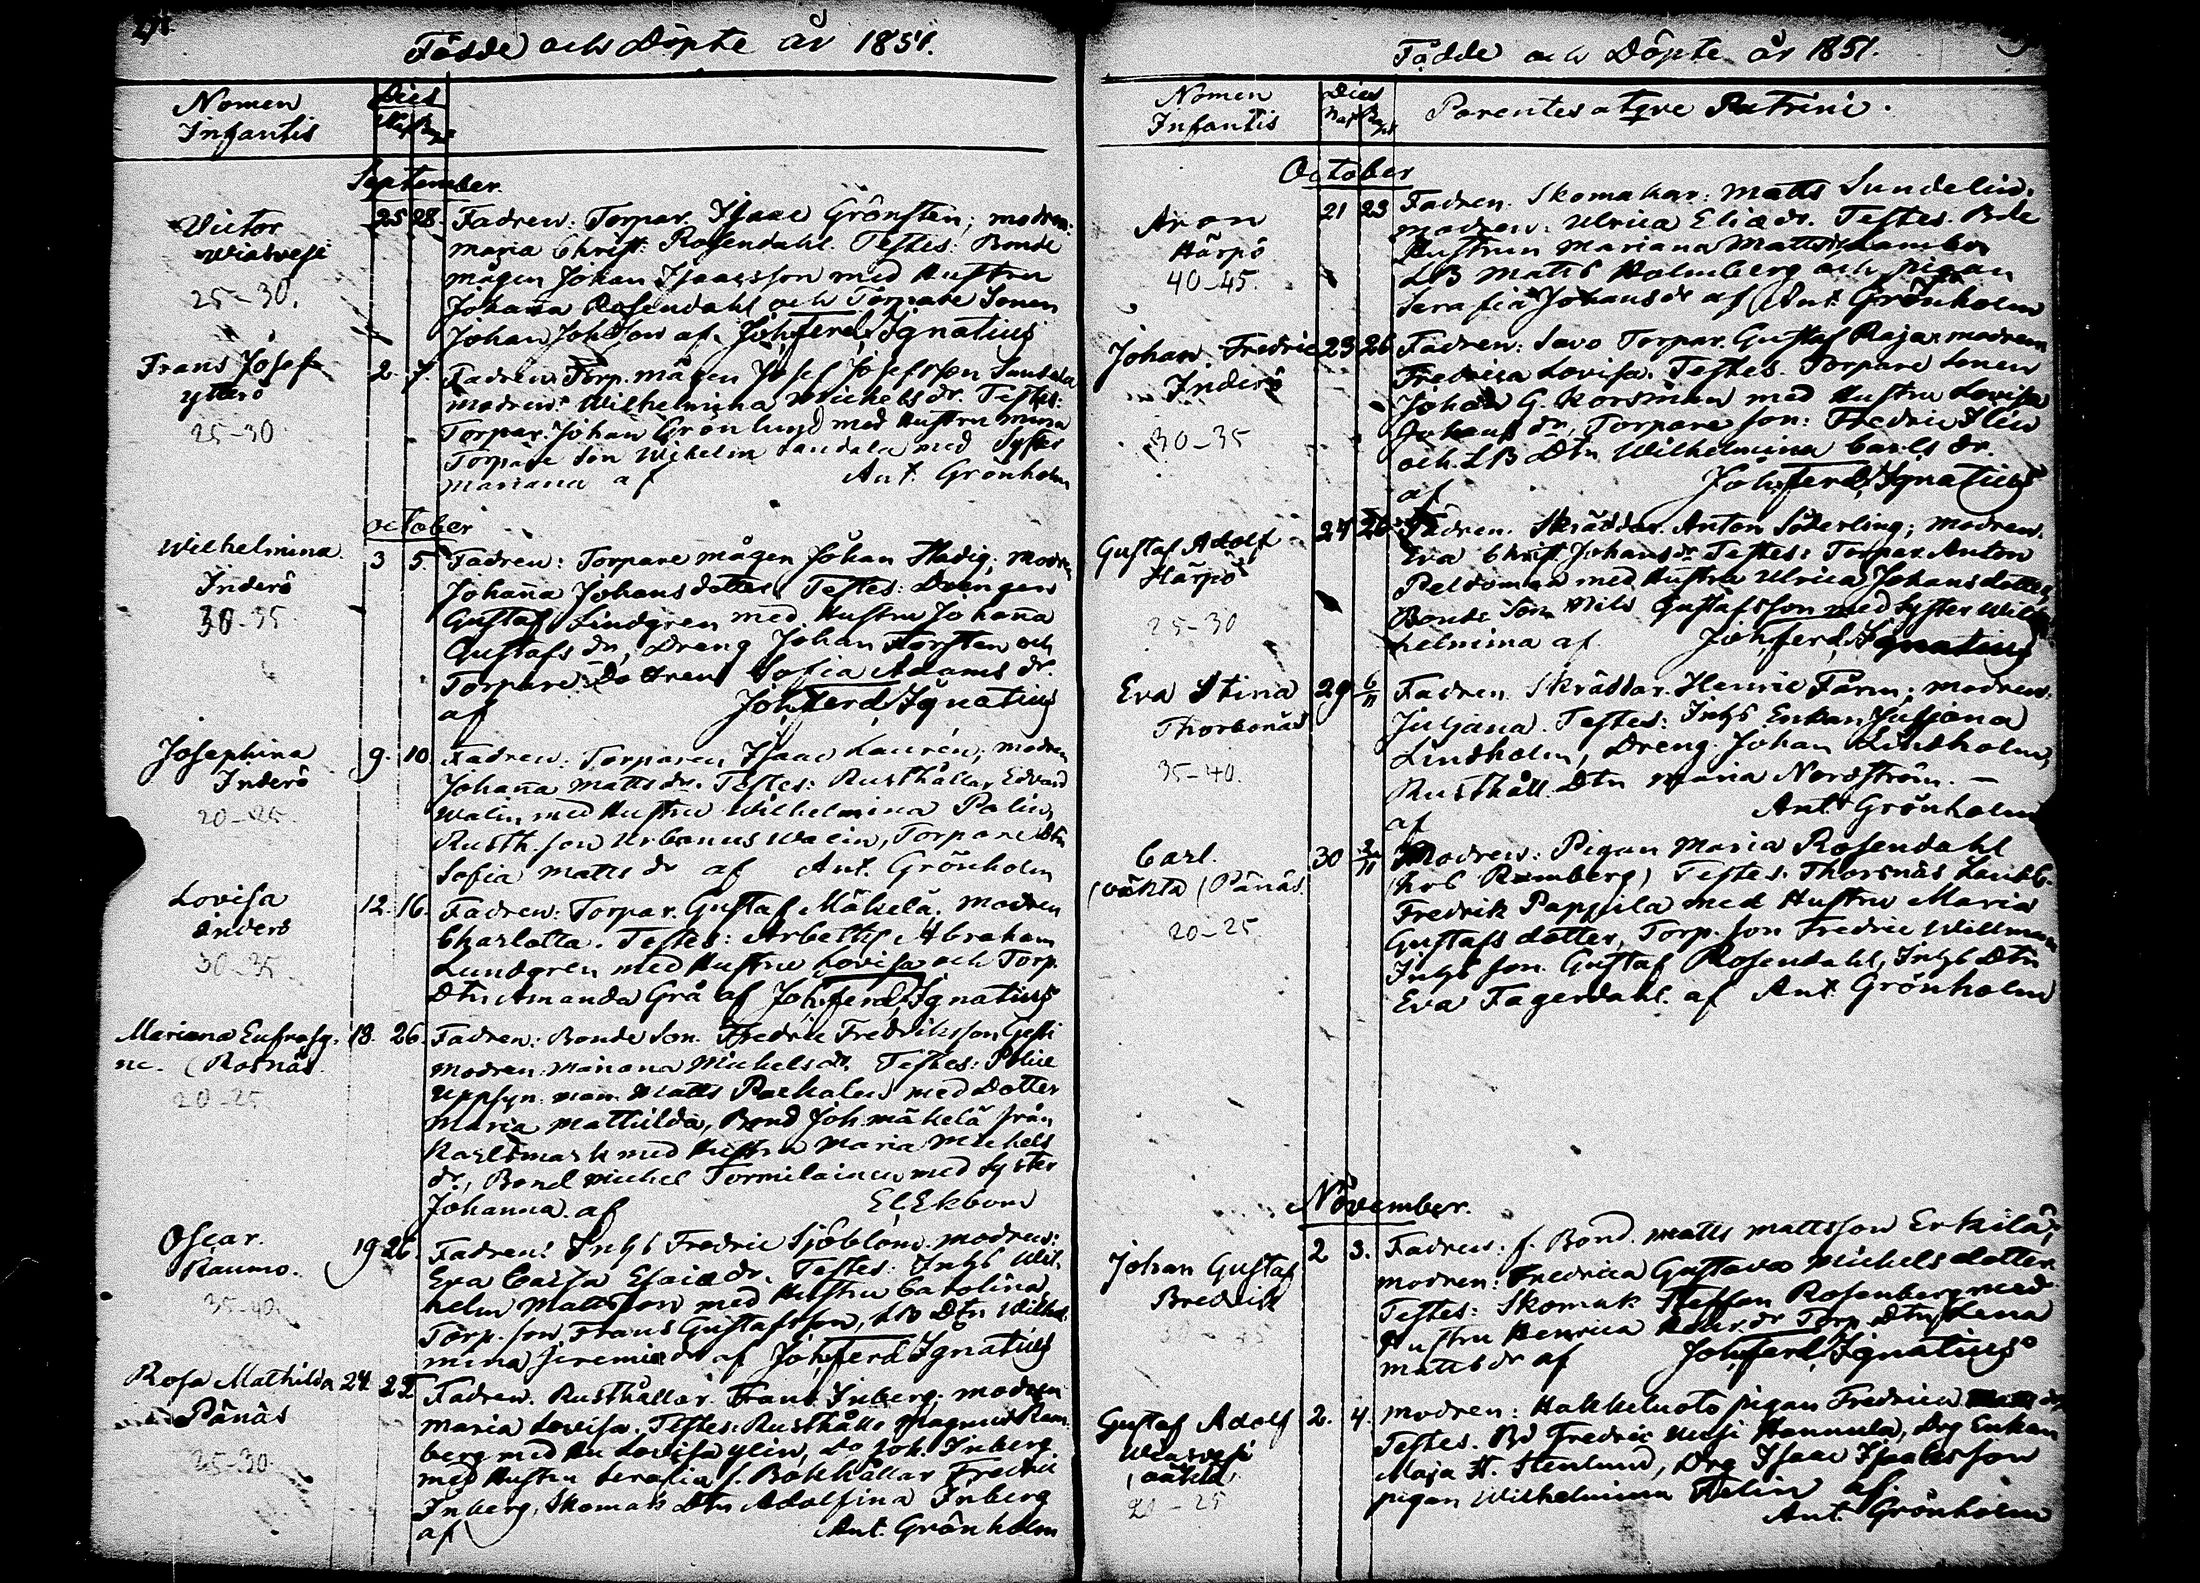 Födde och Döpte år 1851.
Nomen
Infantis
Dies
Nat Bapt
September
Victor
Wiaswesi
25-30.
25 28. Fadren: Torpar. Isaac Grönsten; modren:
Maria Christ: Rosendahl. Testes: Bonde
mågen Johan Isaacsson med Hustru
Johanna Rosendahl och Torpare Sonen
Johan Johsson af Joh. Ferd. Ignatius
Frans Josef
Ytterö
25-30
2. 7. Fadren: Torp. mågen Josef Josefsson Sandala
modren: Wilhelmina Michelsdr. Testes:
Torpar. Johan Grönlund med Hustru Mina
Torpare Son Wilhelm Sandala med Syster
Mariana af Ant. Grönholm
October
Wilhelmina
Inderö
30-35.
3 5. Fadren: Torpare mågen Johan Hadig; modren
Johanna Johansdotter. Testes: Drängen
Gustaf Lindgren med Hustru Johanna
Gustafs dr, Dreng Johan Torsten och
Torpare Dottren Sofia Adams dr.
af Joh. Ferd. Ignatius
Josephina
Inderö
20-25.
9. 10 Fadren: Torparen Isaac Laurén; modren
Johanna Mattsdr. Testes: Rusthållar Edvard
Walin med Hustru Wilhelmina Palin,
Rusth. son Urbanus Walin, Torpare Dtn
Sofia Matts dr af Ant. Grönholm
Lovisa
Inderö
30-35.
12. 16. Fadren: Torpar. Gustaf Mäkelä; modren
Charlotta. Testes: Arbetsk Abraham
Lundgren med Hustru Lovisa och Torp.
Dtr Amanda Grå af Joh. Ferd. Ignatius
Mariana Eufrosy-
ne. (Rosnäs
20-25
18. 26. Fadren: Bonde Son. Fredric Fredriksson
modren Mariana Michelsdr. Testes: Police
Uppsyn. man Matts med Dotter
Maria Mathilda, Bond Joh. Mäkelä från
Karlsmark med Hustru Maria Michels
dr, Bond Michel Tormilainen med Syster
Johanna. af Ekbom
Oscar.
Raumo.
35-40.
19 26. Fadren: Inhs Fredric Sjöblom. modren:
Eva Caisa Esaiædr. Testes: Inhs Wil-
helm Mattsson med Hustru Carolina,
Torp. son, Frans Gustafsson, LB Dtn Wilhel-
mina Jeremiædr af Joh. Ferd. Ignatius
Rosa Mathilda
Pånäs
25-30
24 25 Fadren. Rusthållar. Frans Inberg; modren
Maria Lovisa. Testes: Rusthålls Magnus Ram-
berg med Hu Lovisa Ylin, Do Joh. Inberg.
med Hustru Serafia f. Bokhållar Fredric
Inberg, Skomak Dtn Adolfina Inberg
af Ant. Grönholm
Födde och Döpte år 1851.
Nomen
Infantis
Dies
Nat Bapt
Parentes atqve Patrini.
October
Aron
Härpö
40-45.
21 23 Fadren. Skomakar: Matts Sundelin.
modren: Ulrica Eliædr. Testes. Bde
Hustrun Mariana Mattsdr
LB Matts Holmberg och pigan
Serafia Johansdr af Ant. Grönholm
Johan Fredric
Inderö
30-35
23 26 Fadren: Savo Torpar. Gustaf Raja: modren
Fredrica Lovisa. Testes. Torpare Sonen
Johan G. Korsman med Hustru Lovisa
Johans dr, Torpare son: Fredric Ilin
och LB Dtn Wilhelmina Carls dr.
af Joh. Ferd. Ignatius
Gustaf Adolf
Härpö
25-30
24 26 Fadren. Skräddar. Anton Söderling; modren.
Eva Christ Johansdr. Testes: Torpar. Anton
Peldoman med Hustru Ulrica Johansdotter,
Bonde Son Nils Gustafsson med Syster Wil-
helmina af Joh. Ferd. Ignatius
Eva Stina
Thorsnäs
35-40.
29 6/11 Fadren. Skräddar. Henric Färm; modren.
Juljana. Testes: Inhs Enkan Juljana
Lindholm, Dreng. Johan Lindholm,
Rusthåll. Dtn Maria Nordström. -
af Ant. Grönholm
Carl.
(oäkta (Pånäs
20-25
30 2/11 Modren: Pigan Maria Rosendahl
(hos Ramberg) Testes: Thorsnäs Landb.
Fredrik Pappila med Hustru Maria
Gustafs dotter, Torp. son Fredric Willman
Inhs son Gustaf Rosendahl, Inhs Dtn
Eva Fagerdahl. af Ant. Grönholm
November.
Johan Gustaf
Bredvik
2 3. Fadren: f. Bond. Matts Mattsson Erkilä;
modren: Fredrica Gustava Michels dotter
Testes: Skomak Steffan Rosenberg med
Hustru Henrica Henr. dr Torp. Dtn Lena
Matts dr af Joh. Ferd. Ignatius
Gustaf Adolf
Wiaswesi
(oäkta)
20-25
2. 4. modren: Hakkeluoto pigan Fredrica Matts dr
Testes. Bd Fredric Hannula, Drg Enkan
Maja St. Stenlund, Drg Isaac Isaksson
pigan Wilhelmina Helin af.
Ant. Grönholm